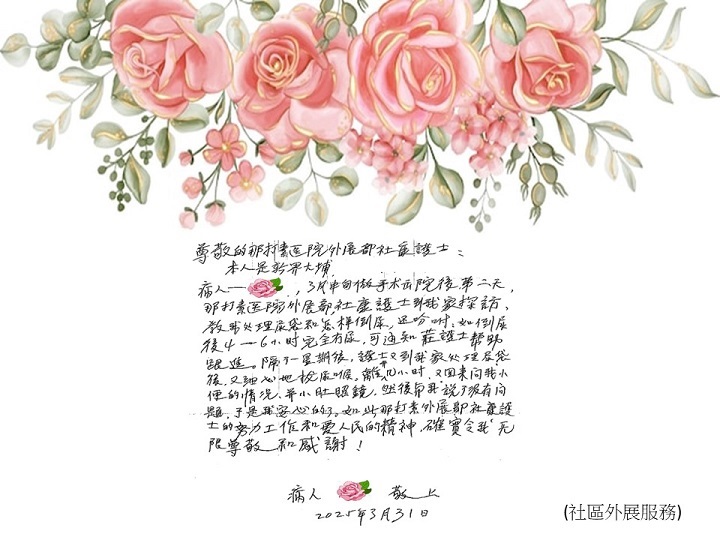 尊敬的那打素医院外展部社區護士：
本人是新界大埔
病人一 ，3月中旬做手术出院後第二天，
那打素医院外展部社區護士到我家探訪、
教我处理尿袋和怎样倒尿，还吩咐，如倒尿
後4一6小时完全冇尿，可通知莊護士帮助
跟進。隔了一星期後，護士又到我家处理尿袋
後，又細心地 尿喉，離 小时，又回来问我小
便的情况，並小肚照鏡，然後귬我说了没有问
題，于是我安心的了。如此那打素外展部社區護
士的努力工作和爱人民的精神，確實令我无
限尊敬和感謝！
病人 敬上
2025年3月31日
(社區外展服務)